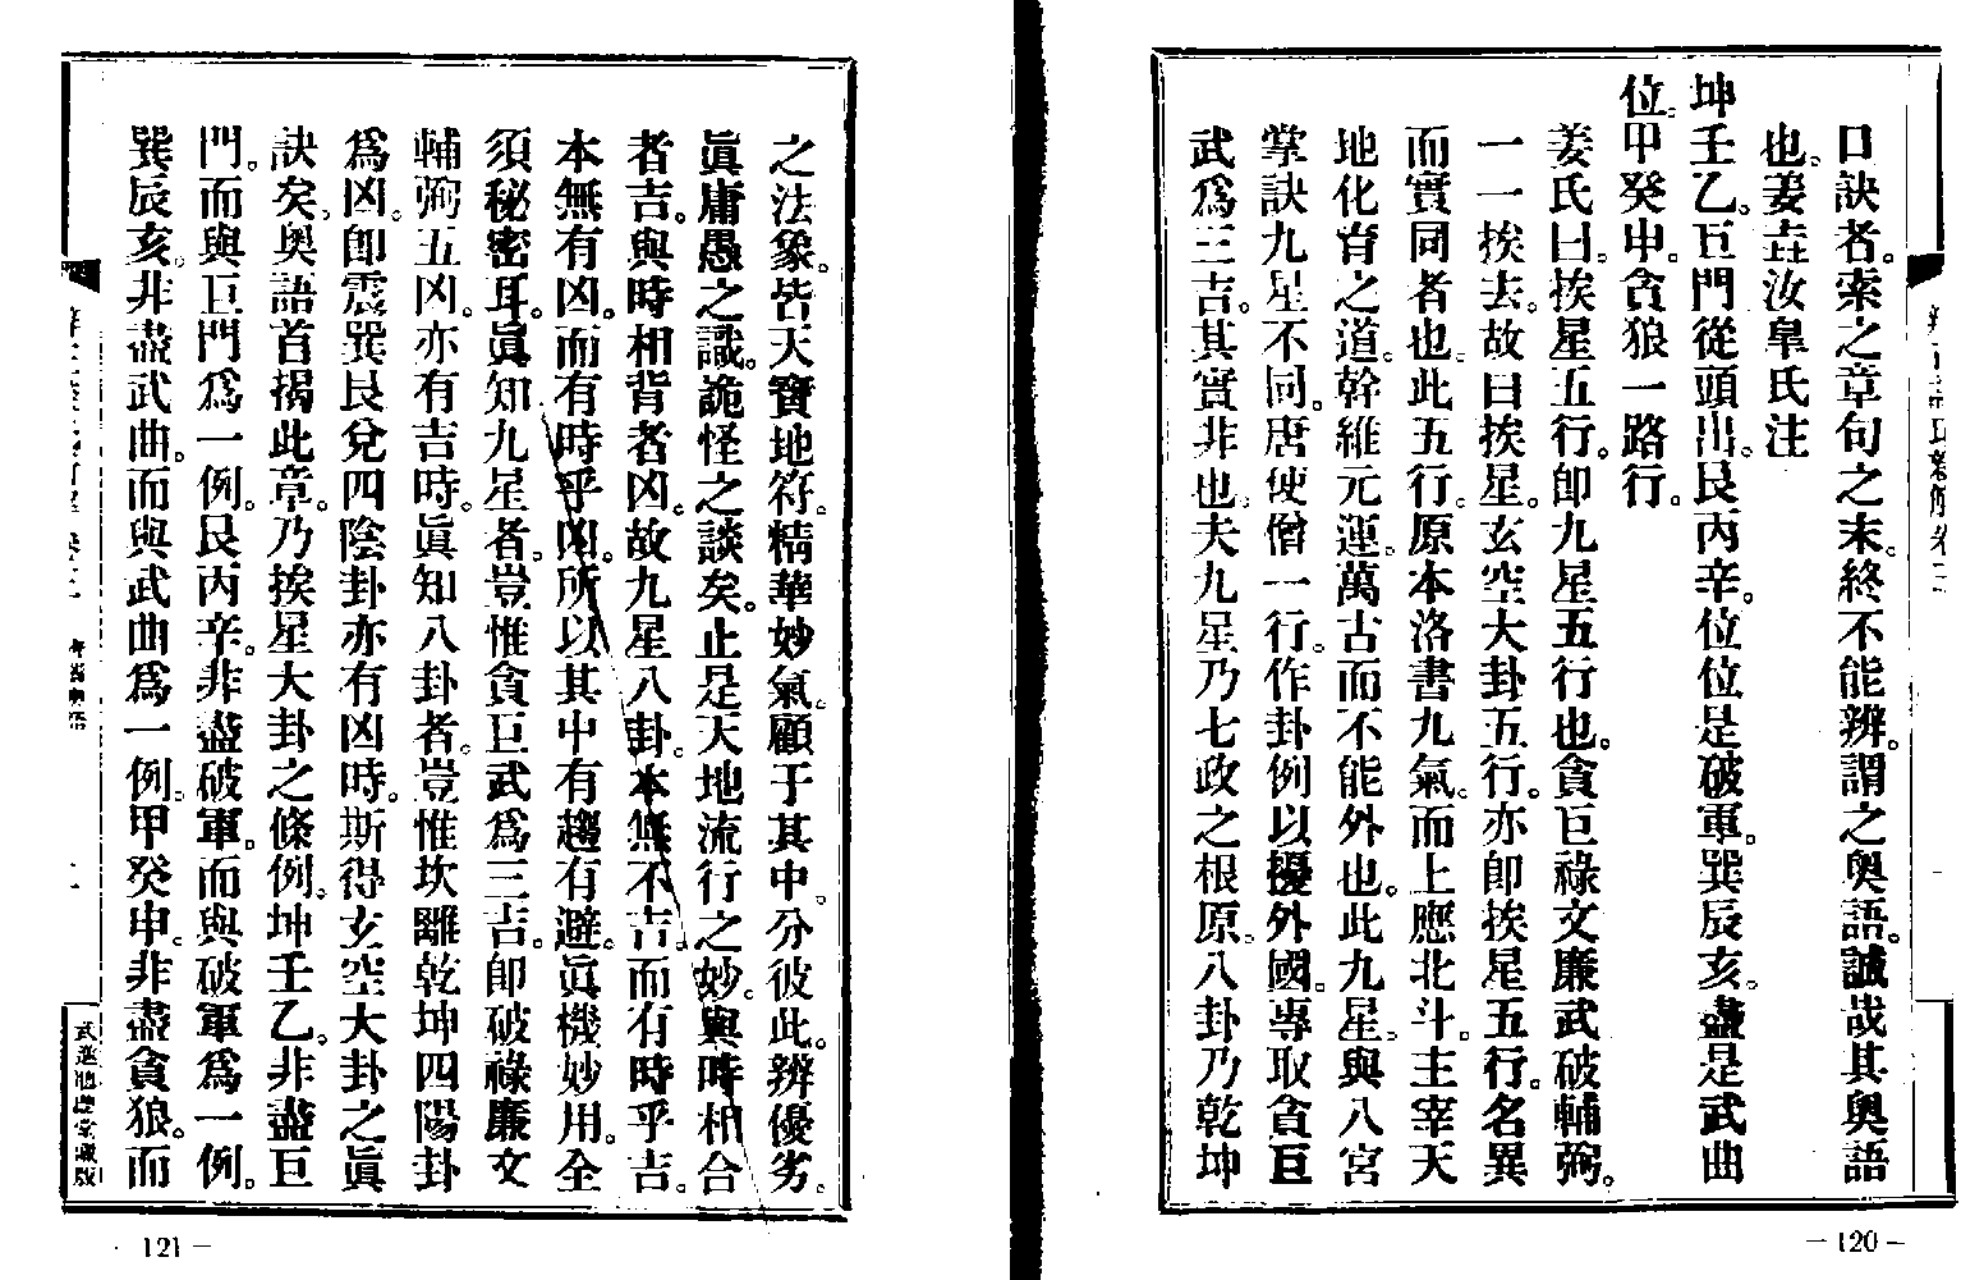 口訣者。索之章句之末。終不能辨。謂之奧語。誠哉其奧語
也。姜垚汝皐氏注
坤壬乙。巨門從頭出。艮丙辛。位位是破軍。巽辰亥。盡是武曲
位。甲癸申。貪狼一路行。
姜氏曰。挨星五行。卽九星五行也。貪巨祿文廉武破輔弼。
一一挨去。故曰挨星。玄空大卦五行。亦卽挨星五行。名異
而實同者也。此五行。原本洛書九氣。而上應北斗。主宰天
地化育之道。幹維元運。萬古而不能外也。此九星。與八宮
掌訣九星不同。唐使僧一行。作卦例以擾外國。專取貪巨
武爲三吉。其實非也。夫九星乃七政之根原。八卦乃乾坤
— 120 —
之法象。皆天寶地符。精華妙氣。顧于其中。分彼此。辨優劣。
眞庸愚之識。詭怪之談矣。止是天地流行之妙。與時相合
者吉。與時相背者凶。故九星八卦。本無不吉。而有時乎吉。
本無有凶。而有時乎凶。所以其中有趨有避。眞機妙用。全
須秘密耳。眞知九星者。豈惟貪巨武爲三吉。卽破祿廉文
輔弼五凶。亦有吉時。眞知八卦者。豈惟坎離乾坤四陽卦
爲凶。卽震巽艮兌四陰卦亦有凶時。斯得玄空大卦之眞
訣矣。奧語首揭此章。乃挨星大卦之條例。坤壬乙。非盡巨
門。而與巨門爲一例。艮丙辛。非盡破軍。而與破軍爲一例。
巽辰亥。非盡武曲。而與武曲爲一例。甲癸申。非盡貪狼。而
121 —